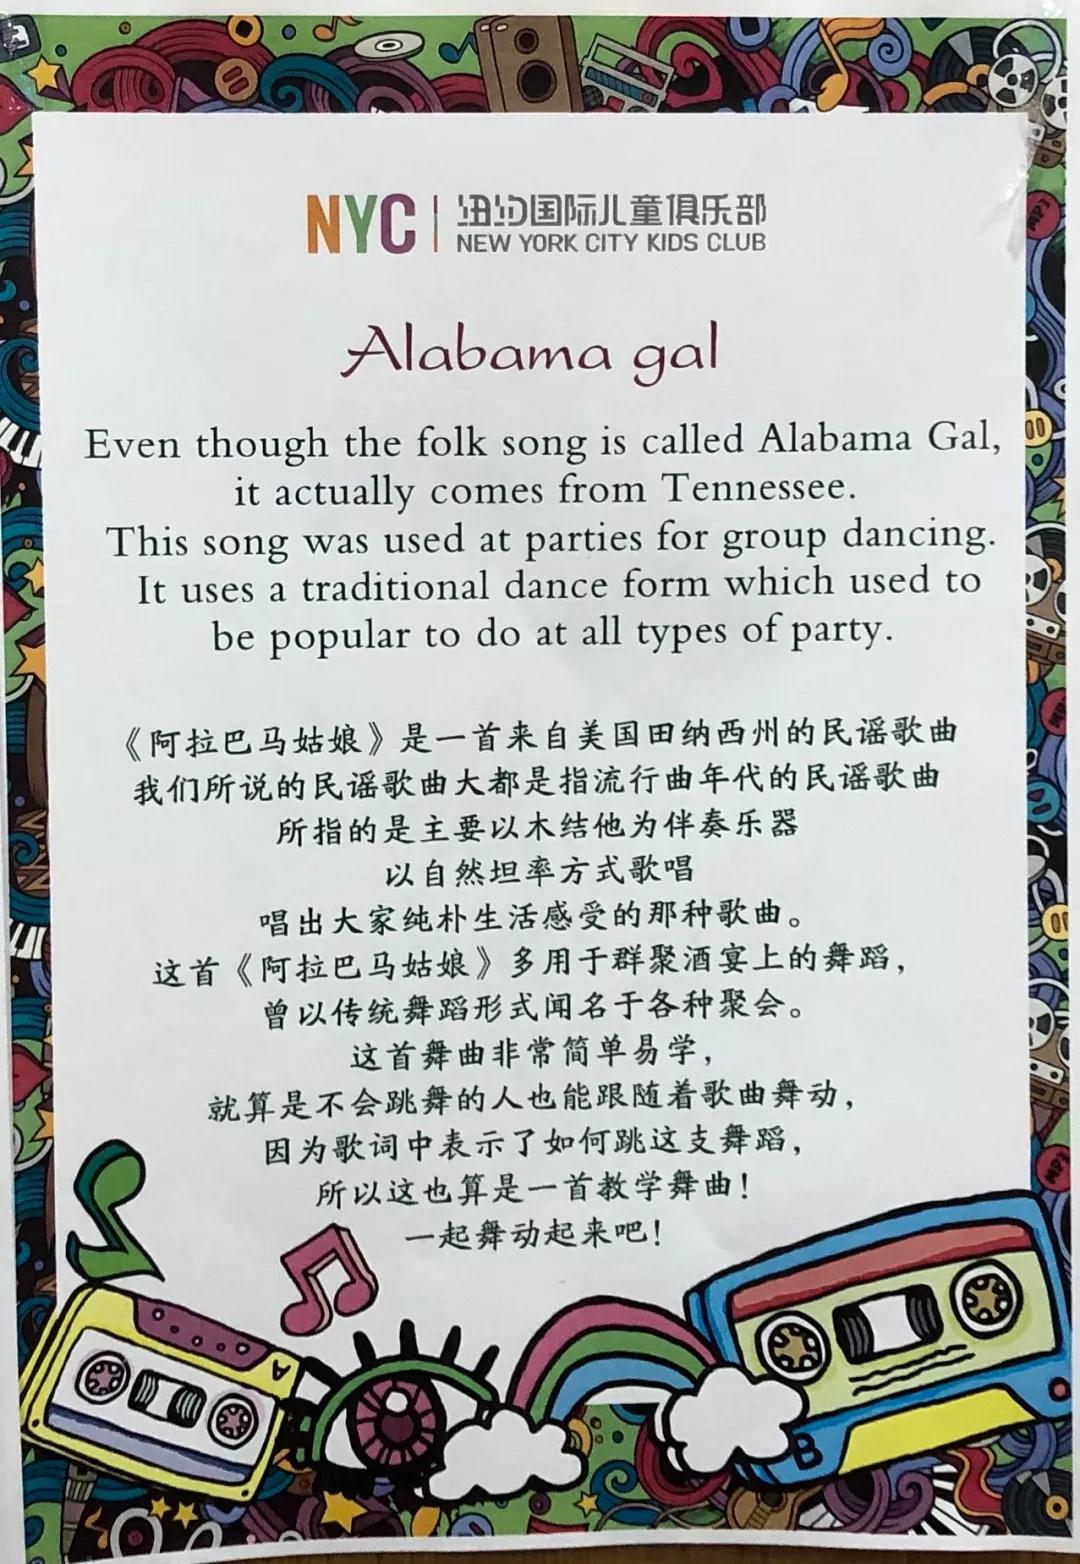 NYC
纽约国际儿童俱乐部
NEW YORK CITY KIDS CLUB
Alabama gal
Even though the folk song is called Alabama Gal,
it actually comes from Tennessee.
This song was used at parties for group dancing.
It uses a traditional dance form which used to
be popular to do at all types of party.
《阿拉巴马姑娘》是一首来自美国田纳西州的民谣歌曲
我们所说的民谣歌曲大都是指流行曲年代的民谣歌曲
所指的是主要以木结他为伴奏乐器
以自然坦率方式歌唱
唱出大家纯朴生活感受的那种歌曲。
这首《阿拉巴马姑娘》多用于群聚酒宴上的舞蹈，
曾以传统舞蹈形式闻名于各种聚会。
这首舞曲非常简单易学，
就算是不会跳舞的人也能跟随着歌曲舞动，
因为歌词中表示了如何跳这支舞蹈，
所以这也算是一首教学舞曲！
一起舞动起来吧！
MP3
MP3
MP3
A
B